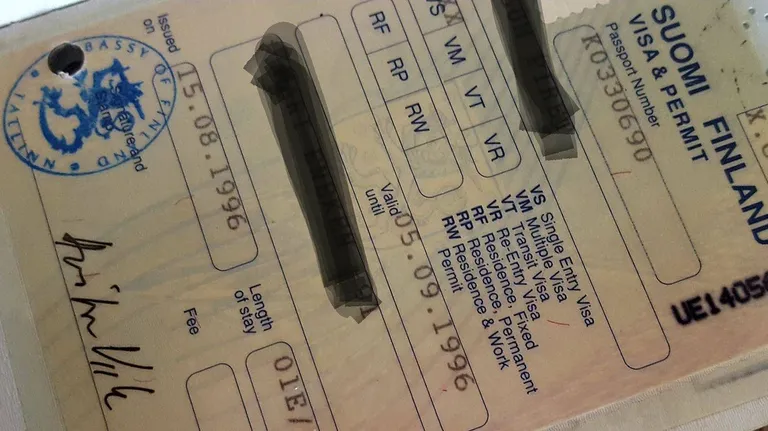 SUOMI FINLAND
VISA & PERMIT
Passport Number
K0330690
UE1405
VS Single Entry Visa
VM Multiple Visa
VT Transit Visa
VR Re-Entry Visa
RF Residence, Fixed
RP Residence, Permanent
RW Residence & Work
Permit
VS VM VT VR
XX
RF RP RW
Valid
until
05.09.1996
Issued
on
15.08.1996
Length
of stay
01E/
Fee
Signature and
EMBASSY OF FINLAND
TALLINN